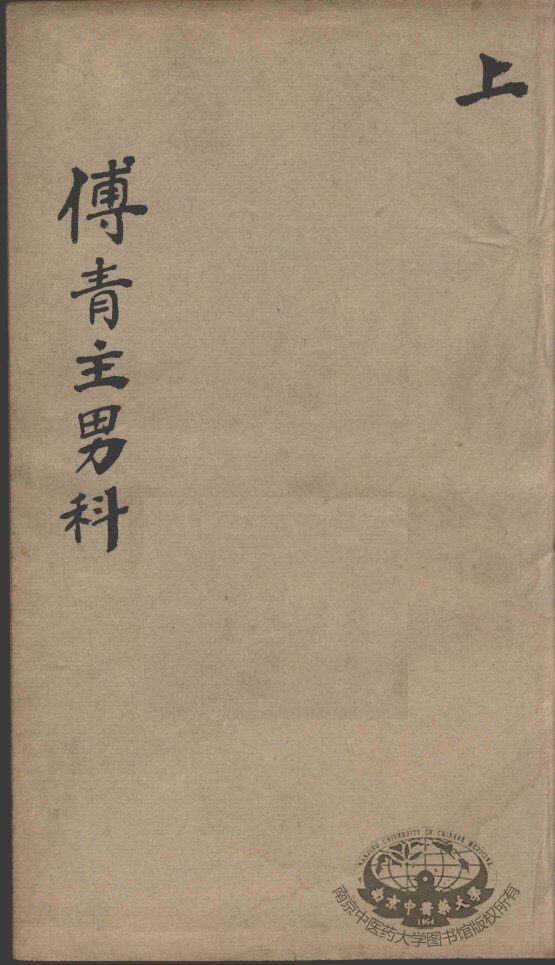 上
傅青主男科
NANJING UNIVERSITY OF CHINESE MEDICINE
南京中醫藥大學
1954
南京中医药大学图书馆版权所有